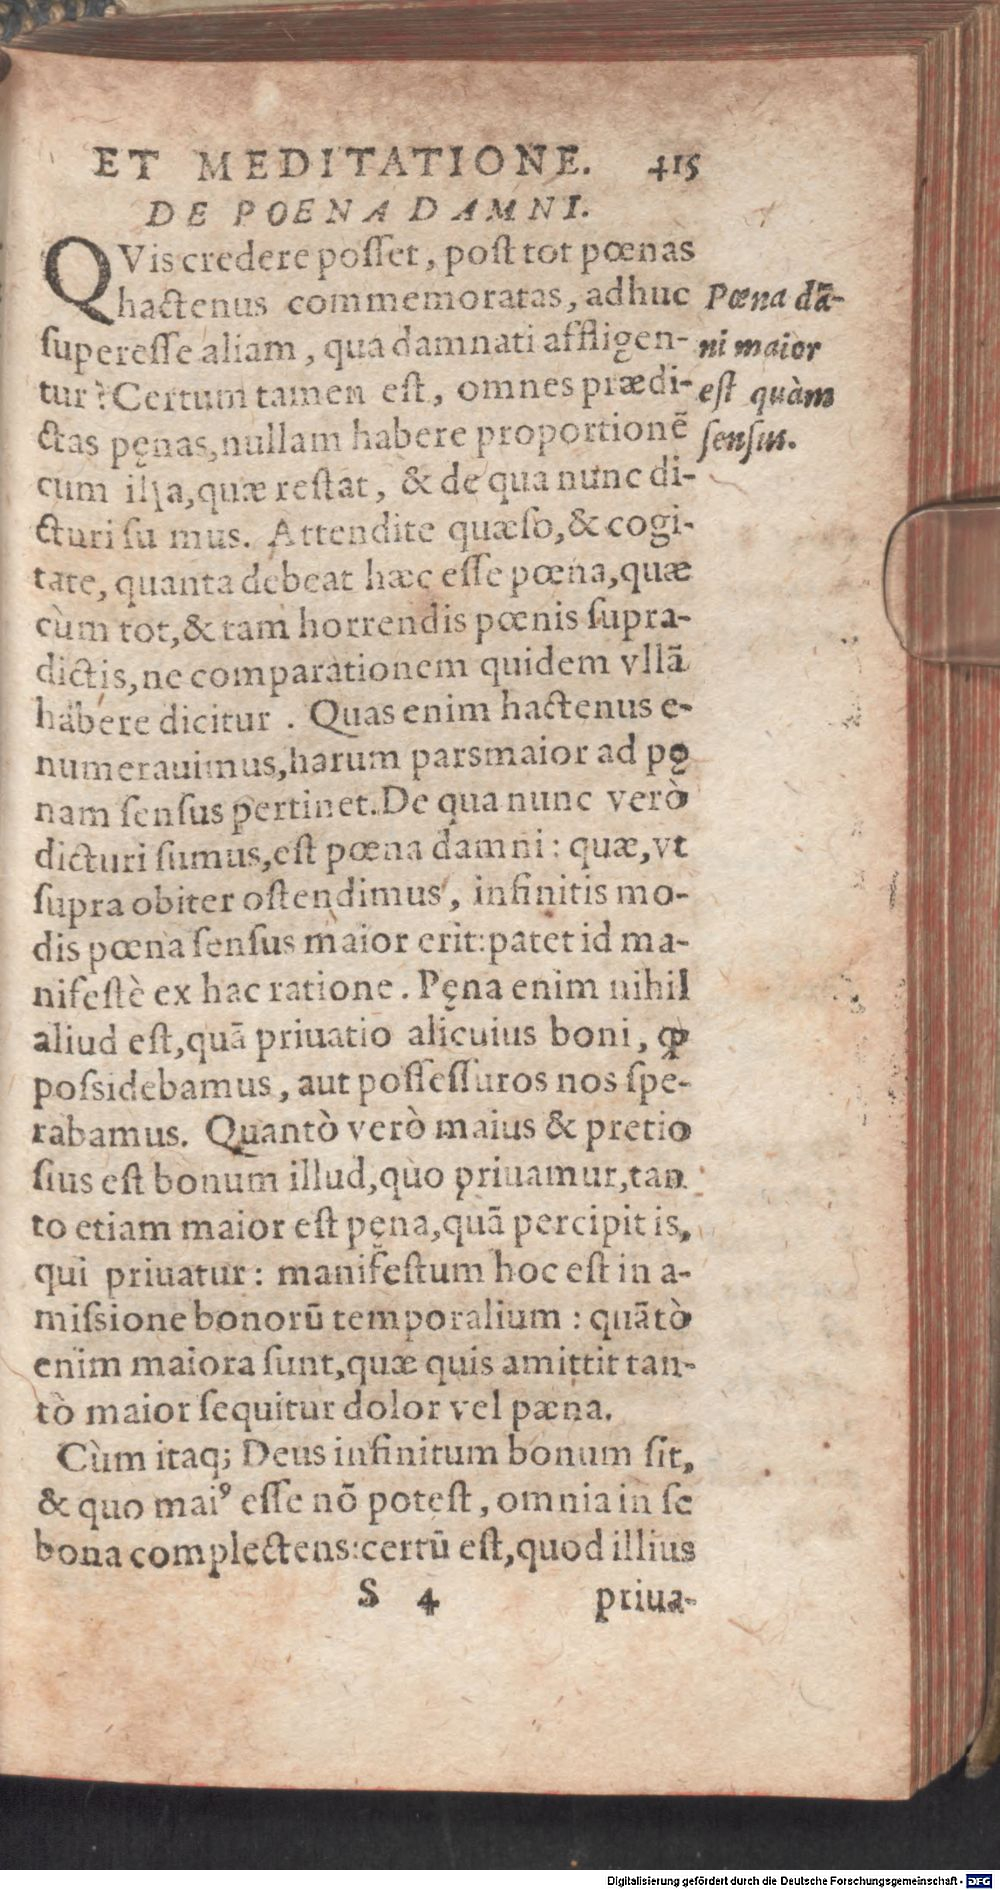 ET MEDITATIONE. 415
DE POENA DAMNI.
QVis credere poſſet, poſt tot pœnas
hactenus commemoratas, adhuc
ſupereſſe aliam, qua damnati affligen-
tur? Certum tamen eſt, omnes prædi-
ctas pęnas, nullam habere proportionẽ
cum illa, quæ reſtat, & de qua nunc di-
cturi ſu mus. Attendite quæſo, & cogi-
tate, quanta debeat hæc eſſe pœna, quæ
cùm tot, & tam horrendis pœnis ſupra-
dictis, ne comparationem quidem vllã
habere dicitur. Quas enim hactenus e-
numerauimus, harum pars maior ad pę
nam ſenſus pertinet. De qua nunc verò
dicturi ſumus, eſt pœna damni: quæ, vt
ſupra obiter oſtendimus, infinitis mo-
dis pœna ſenſus maior erit: patet id ma-
nifeſtè ex hac ratione. Pęna enim nihil
aliud eſt, quã priuatio alicuius boni, ꝙ
poſsidebamus, aut poſſeſſuros nos ſpe-
rabamus. Quantò verò maius & pretio
ſius eſt bonum illud, quo priuamur, tan
to etiam maior eſt pęna, quã percipit is,
qui priuatur: manifeſtum hoc eſt in a-
miſsione bonorũ temporalium: quãtò
enim maiora ſunt, quæ quis amittit tan-
tò maior ſequitur dolor vel pæna.
Cùm itaq; Deus infinitum bonum ſit,
& quo maiꝰ eſſe nõ poteſt, omnia in ſe
bona complectens: certũ eſt, quod illius
S 4 priua-
Pœna dã-
ni maior
eſt quàm
ſenſus.
Digitalisierung gefördert durch die Deutsche Forschungsgemeinschaft - DFG